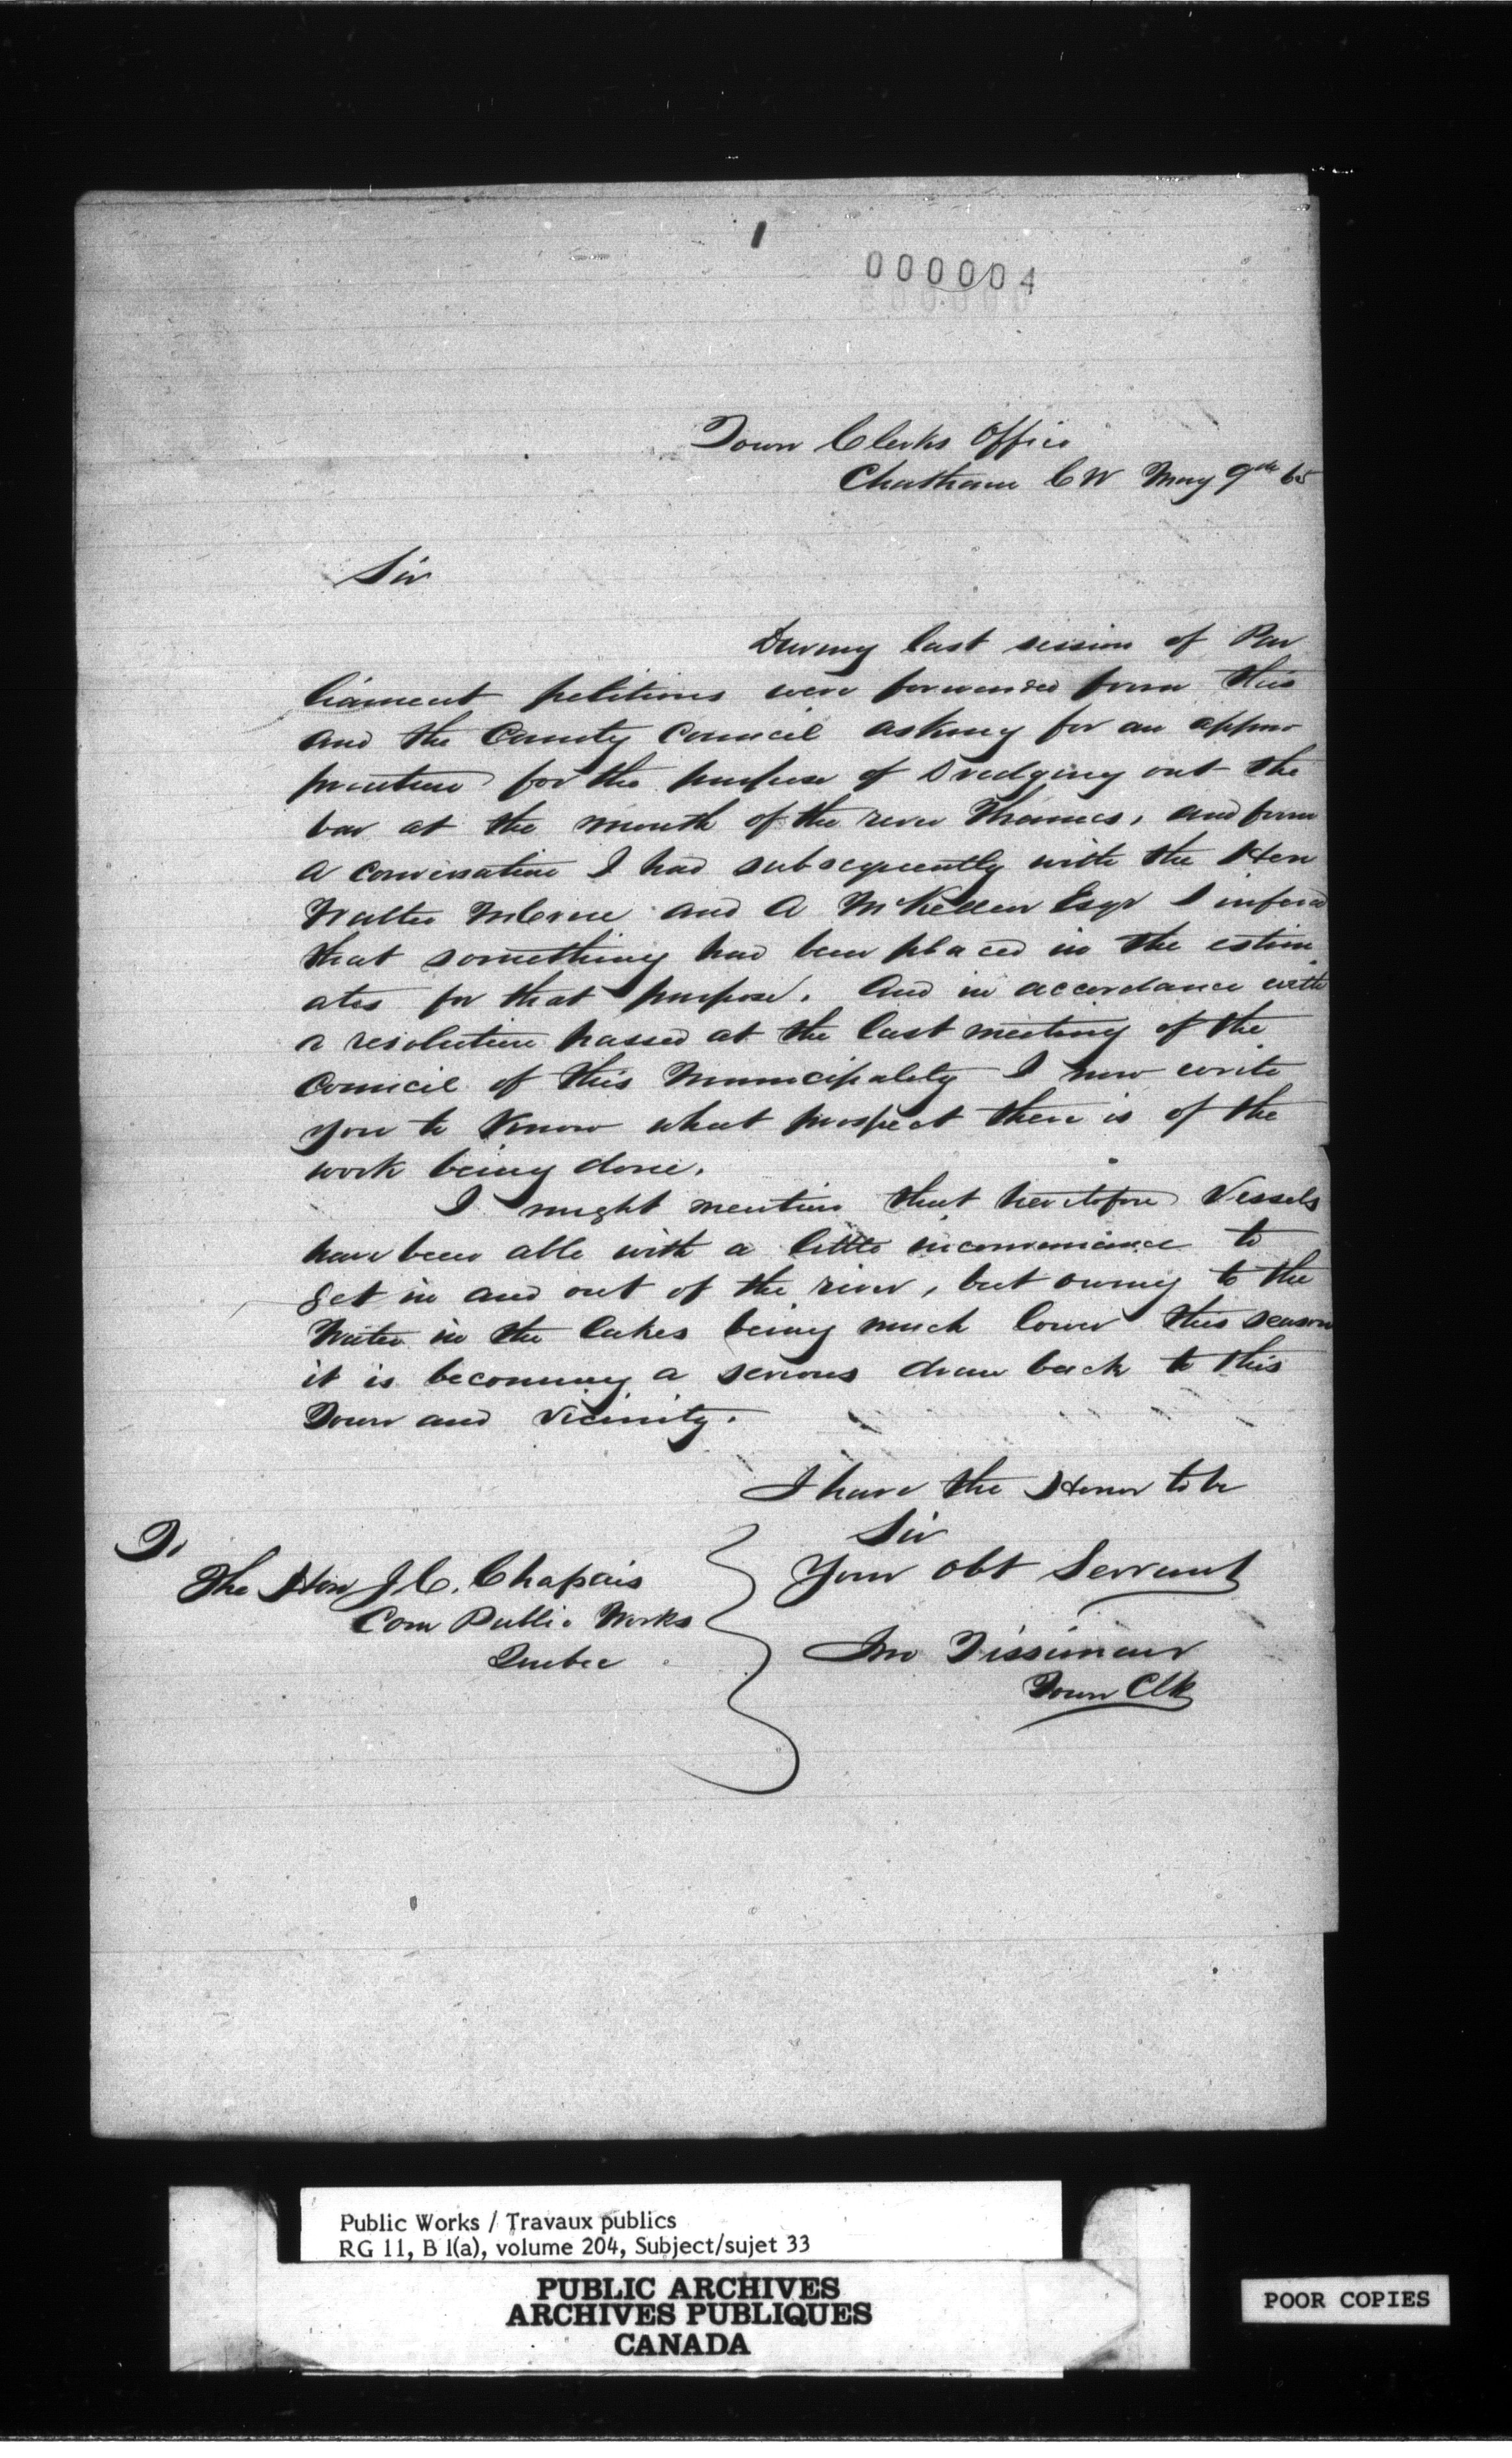 000004
Town Clerks Office
Chatham C W May 9th 65
Sir
During last session of Par
liament petitions were forwarded from this
and the County Council asking for an appro
priation for the purpose of Dredging out the
bar at the mouth of the river Thames, and from
a conversation I had subsequently with the Hon
Walter McCrae and A McKellar Esqr I infered
that something had been placed in the estim
ates for that purpose. And in accordance with
a resolution passed at the last meeting of the
Council of this Municipality I now write
you to know what prospect there is of the
work being done.
I might mention that heretofore Vessels
have been able with a little inconvenience to
get in and out of the river, but owing to the
Water in the lakes being much lower this season
it is becoming a serious draw back to this
Town and Vicinity.
I have the Honor to be
Sir
Your obt Servant
Jno Tissiman
Town Clk
To
The Hon J. C. Chapais
Com Public Works
Quebec
Public Works / Travaux publics
RG 11, B 1(a), volume 204, Subject/sujet 33
PUBLIC ARCHIVES
ARCHIVES PUBLIQUES
CANADA
POOR COPIES